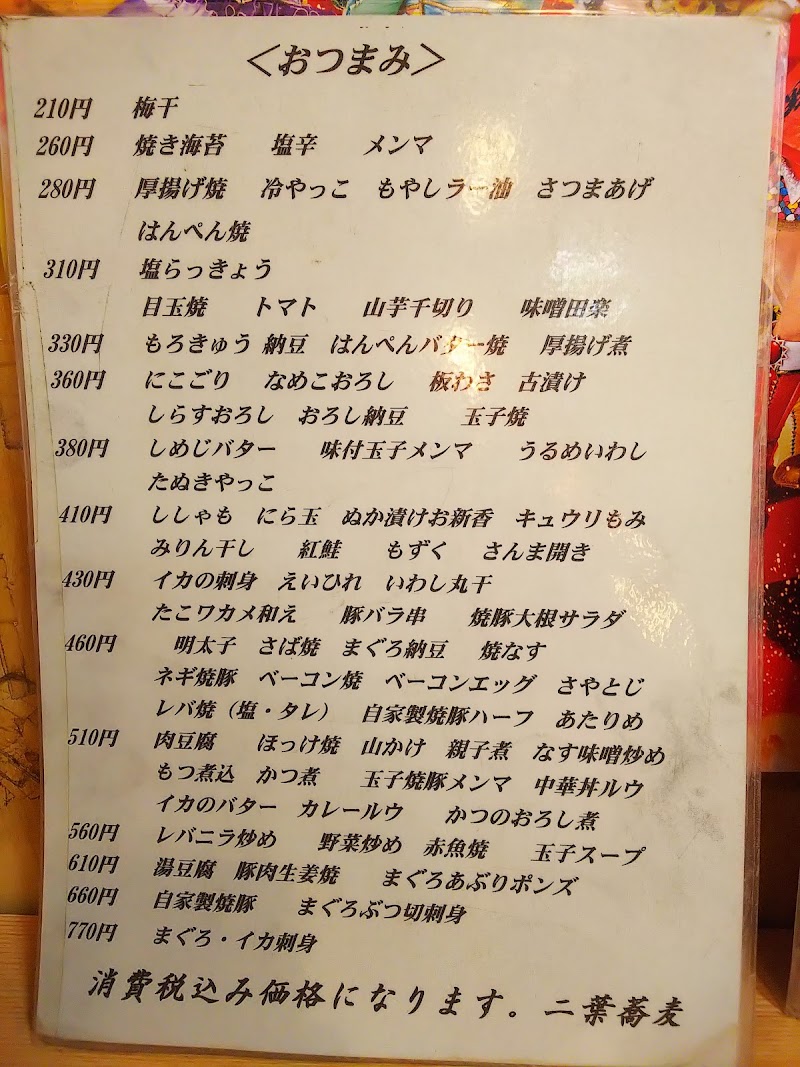 ＜おつまみ＞
210円 梅干
260円 焼き海苔 塩辛 メンマ
280円 厚揚げ焼 冷やっこ もやしラー油 さつまあげ
はんぺん焼
310円 塩らっきょう
目玉焼 トマト 山芋千切り 味噌田楽
330円 もろきゅう 納豆 はんぺんバター焼 厚揚げ煮
360円 にこごり なめこおろし 板わさ 古漬け
しらすおろし おろし納豆 玉子焼
380円 しめじバター 味付玉子メンマ うるめいわし
たぬきやっこ
410円 ししゃも にら玉 ぬか漬けお新香 キュウリもみ
みりん干し 紅鮭 もずく さんま開き
430円 イカの刺身 えいひれ いわし丸干
たこワカメ和え 豚バラ串 焼豚大根サラダ
460円 明太子 さば焼 まぐろ納豆 焼なす
ネギ焼豚 ベーコン焼 ベーコンエッグ さやとじ
レバ焼（塩・タレ） 自家製焼豚ハーフ あたりめ
510円 肉豆腐 ほっけ焼 山かけ 親子煮 なす味噌炒め
もつ煮込 かつ煮 玉子焼豚メンマ 中華丼ルウ
イカのバター カレールウ かつのおろし煮
560円 レバニラ炒め 野菜炒め 赤魚焼 玉子スープ
610円 湯豆腐 豚肉生姜焼 まぐろあぶりポンズ
660円 自家製焼豚 まぐろぶつ切刺身
770円 まぐろ・イカ刺身
消費税込み価格になります。二葉蕎麦